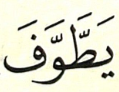 يَطَّوَّفَ